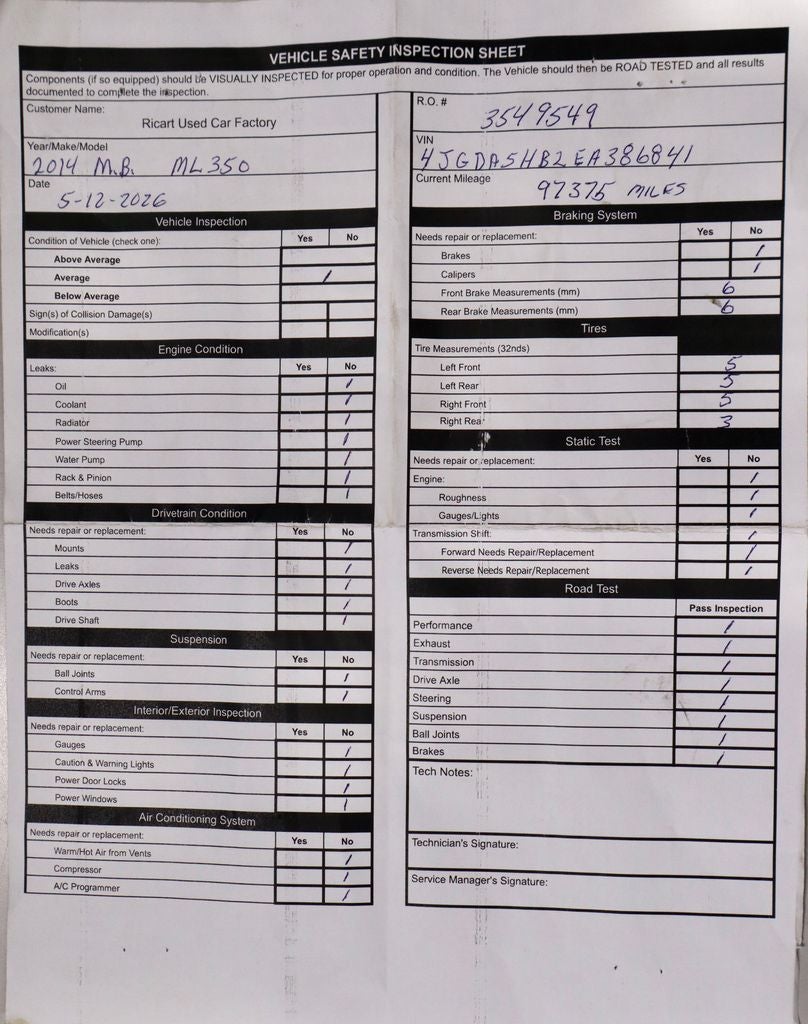 VEHICLE SAFETY INSPECTION SHEET
Components (if so equipped) should be VISUALLY INSPECTED for proper operation and condition. The Vehicle should then be ROAD TESTED and all results
documented to complete the inspection.
Customer Name:
Ricart Used Car Factory
Year/Make/Model
2014 M.B. ML350
Date
5-12-2026
Vehicle Inspection
Condition of Vehicle (check one): Yes No
Above Average
Average /
Below Average
Sign(s) of Collision Damage(s)
Modification(s)
Engine Condition
Leaks: Yes No
Oil /
Coolant /
Radiator /
Power Steering Pump /
Water Pump /
Rack & Pinion /
Belts/Hoses /
Drivetrain Condition
Needs repair or replacement: Yes No
Mounts /
Leaks /
Drive Axles /
Boots /
Drive Shaft /
Suspension
Needs repair or replacement: Yes No
Ball Joints /
Control Arms /
Interior/Exterior Inspection
Needs repair or replacement: Yes No
Gauges /
Caution & Warning Lights /
Power Door Locks /
Power Windows /
Air Conditioning System
Needs repair or replacement: Yes No
Warm/Hot Air from Vents /
Compressor /
A/C Programmer /
R.O. #
3549549
VIN
4JGDA5HB2EA386841
Current Mileage
97375 MILES
Braking System
Needs repair or replacement: Yes No
Brakes /
Calipers /
Front Brake Measurements (mm) 6
Rear Brake Measurements (mm) 6
Tires
Tire Measurements (32nds)
Left Front 5
Left Rear 5
Right Front 5
Right Rear 3
Static Test
Needs repair or replacement: Yes No
Engine: /
Roughness /
Gauges/Lights /
Transmission Shift: /
Forward Needs Repair/Replacement /
Reverse Needs Repair/Replacement /
Road Test
Pass Inspection
Performance /
Exhaust /
Transmission /
Drive Axle /
Steering /
Suspension /
Ball Joints /
Brakes /
Tech Notes:
Technician's Signature:
Service Manager's Signature: